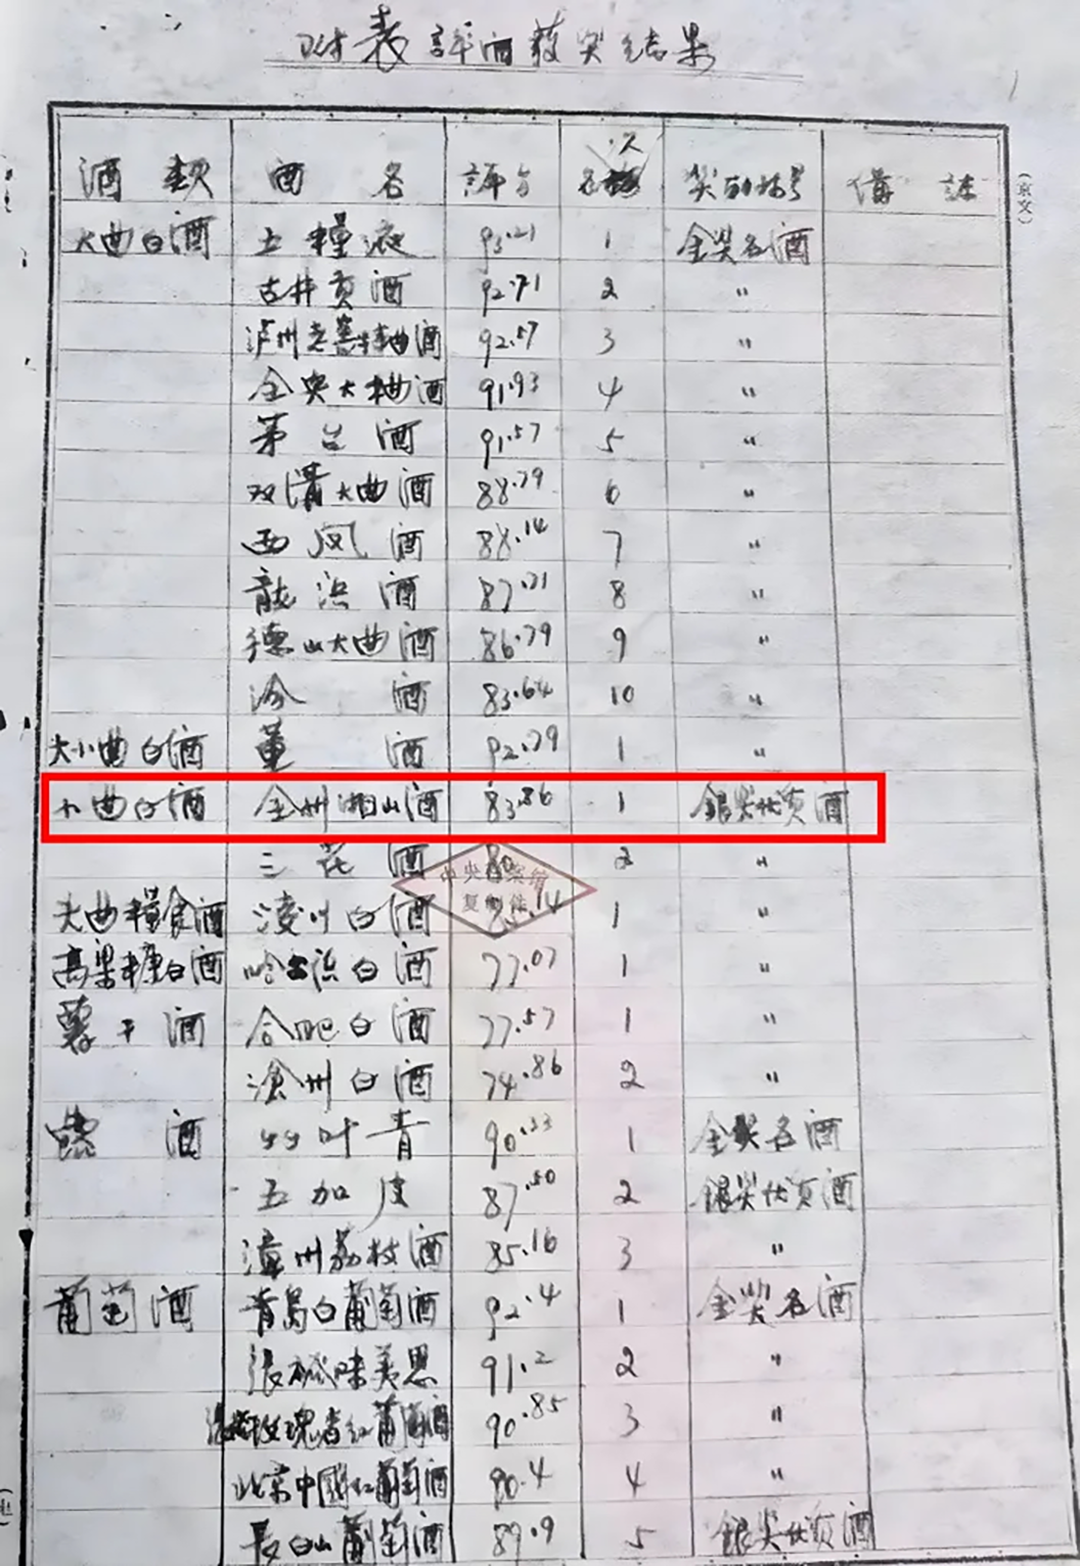 附表 評酒获奖结果
酒類 酒名 評分 名次 奖励称号 備註
(京文)
大曲白酒 五糧液 93.21 1 金奖名酒
古井贡酒 92.71 2 〃
泸州老窖大曲酒 92.57 3 〃
全兴大曲酒 91.93 4 〃
茅台酒 91.57 5 〃
双溝大曲酒 88.79 6 〃
西凤酒 88.14 7 〃
龍浜酒 87.21 8 〃
德山大曲酒 86.79 9 〃
汾酒 83.64 10 〃
大小曲白酒 董酒 92.79 1 〃
小曲白酒 全州湘山酒 83.86 1 銀奖优质酒
三花酒 80 2 〃
中央档案馆
复制件
大曲糧食酒 凌川白酒 .14 1 〃
高梁糠白酒 哈尔浜白酒 77.07 1 〃
薯干酒 合肥白酒 77.57 1 〃
滄州白酒 74.86 2 〃
露酒 竹叶青 90.33 1 金奖名酒
五加皮 87.50 2 銀奖优质酒
漳州荔枝酒 85.16 3 〃
葡萄酒 青岛白葡萄酒 92.4 1 金奖名酒
張裕味美思 91.2 2 〃
玫瑰香红葡萄酒 90.85 3 〃
北京中國红葡萄酒 90.4 4 〃
長白山葡萄酒 89.9 5 銀奖优质酒